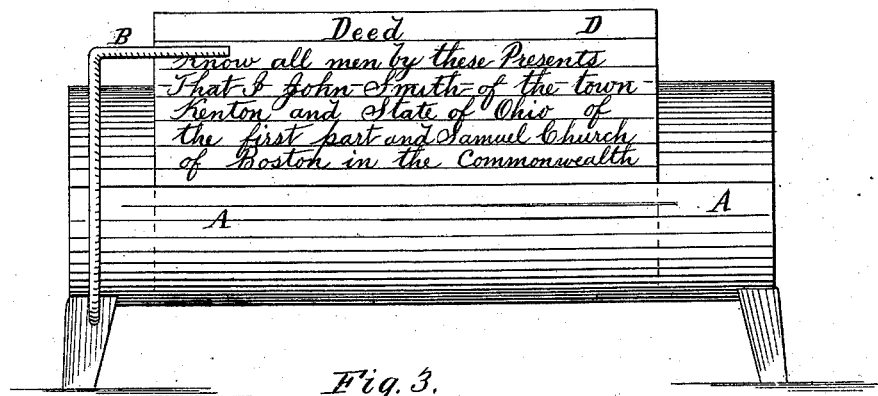 Deed D
B
Know all men by these Presents
That I John Smith of the town
Kenton and State of Ohio of
the first part and Samuel Church
of Boston in the Commonwealth
A A
Fig. 3.